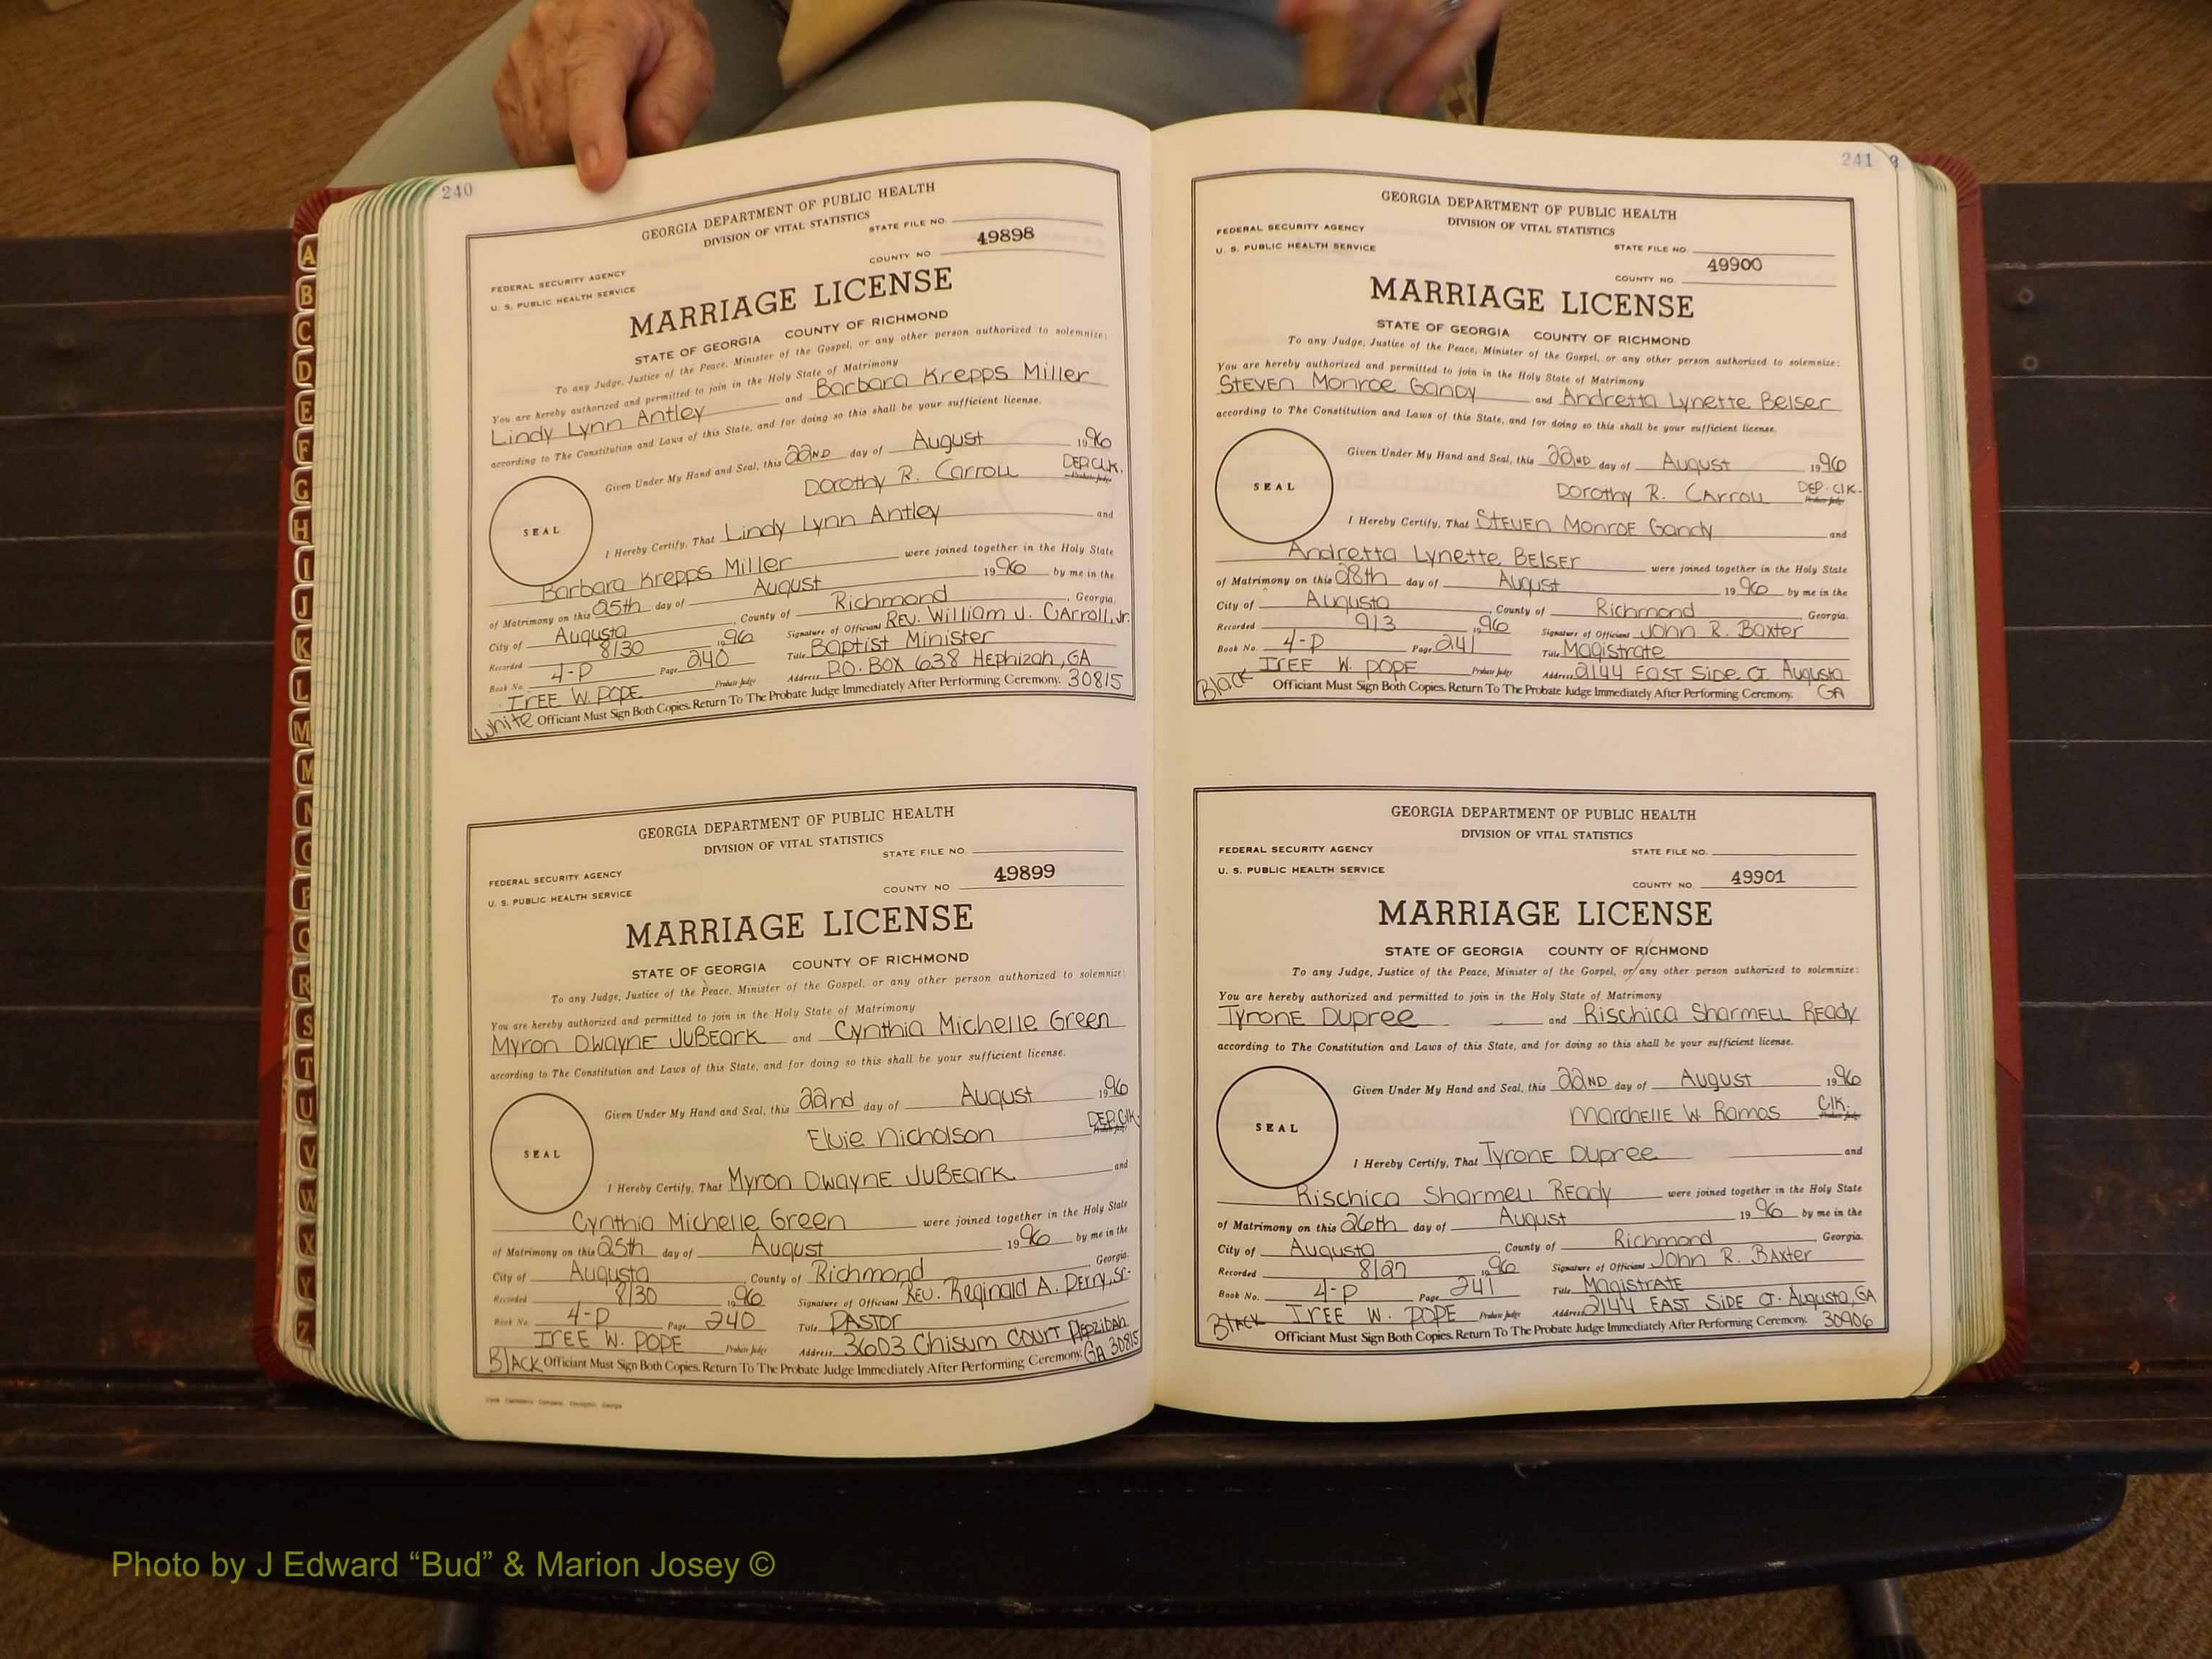 240
GEORGIA DEPARTMENT OF PUBLIC HEALTH
DIVISION OF VITAL STATISTICS
STATE FILE NO.
49898
COUNTY NO
FEDERAL SECURITY AGENCY
U. S. PUBLIC HEALTH SERVICE
MARRIAGE LICENSE
STATE OF GEORGIA COUNTY OF RICHMOND
To any Judge, Justice of the Peace, Minister of the Gospel, or any other person authorized to solemnize:
You are hereby authorized and permitted to join in the Holy State of Matrimony
Lindy Lynn Antley and Barbara Krepps Miller
according to The Constitution and Laws of this State, and for doing so this shall be your sufficient license.
Given Under My Hand and Seal, this 22ND day of August 1996
Dorothy R. Carroll DEP. CLK.
Probate Judge
SEAL
I Hereby Certify, That Lindy Lynn Antley and
Barbara Krepps Miller were joined together in the Holy State
of Matrimony on this 25th day of August 1996 by me in the
City of Augusta, County of Richmond, Georgia.
Recorded 8/30 1996 Signature of Officiant REV. William J. CArroll, Jr.
Book No. 4-P Page 240 Title Baptist Minister
IREE W. POPE Probate Judge Address P.O. BOX 638 HEphizah, GA
White Officiant Must Sign Both Copies. Return To The Probate Judge Immediately After Performing Ceremony. 30815
GEORGIA DEPARTMENT OF PUBLIC HEALTH
DIVISION OF VITAL STATISTICS
STATE FILE NO.
49899
FEDERAL SECURITY AGENCY
COUNTY NO
U. S. PUBLIC HEALTH SERVICE
MARRIAGE LICENSE
STATE OF GEORGIA COUNTY OF RICHMOND
To any Judge, Justice of the Peace, Minister of the Gospel, or any other person authorized to solemnize:
You are hereby authorized and permitted to join in the Holy State of Matrimony
Myron DWAYNE JUBEARK and Cynthia Michelle Green
according to The Constitution and Laws of this State, and for doing so this shall be your sufficient license.
Given Under My Hand and Seal, this 22nd day of August 1996
Elvie Nicholson DEP. Clk.
SEAL
I Hereby Certify, That Myron DWAYNE JUBEARK and
Cynthia Michelle Green were joined together in the Holy State
of Matrimony on this 25th day of August 1996 by me in the
City of Augusta, County of Richmond Georgia.
Recorded 8/30 1996 Signature of Officiant REV. Reginald A. Perry, Sr.
Book No. 4-P Page 240 Title PASTOR
IREE W. POPE Probate Judge Address 3603 Chisum COURT Hepzibah
BlACK Officiant Must Sign Both Copies. Return To The Probate Judge Immediately After Performing Ceremony. GA 30815
241
GEORGIA DEPARTMENT OF PUBLIC HEALTH
DIVISION OF VITAL STATISTICS
FEDERAL SECURITY AGENCY
U. S. PUBLIC HEALTH SERVICE
STATE FILE NO.
49900
COUNTY NO.
MARRIAGE LICENSE
STATE OF GEORGIA COUNTY OF RICHMOND
To any Judge, Justice of the Peace, Minister of the Gospel, or any other person authorized to solemnize:
You are hereby authorized and permitted to join in the Holy State of Matrimony
STEVEN Monroe Gandy and Andretta Lynette Belser
according to The Constitution and Laws of this State, and for doing so this shall be your sufficient license.
Given Under My Hand and Seal, this 22ND day of August 1996
Dorothy R. CArroll DEP. ClK.
Probate Judge
SEAL
I Hereby Certify, That STEVEN MonroE Gandy and
Andretta Lynette BElSEr were joined together in the Holy State
of Matrimony on this 28th day of August 1996 by me in the
City of Augusta, County of Richmond, Georgia.
Recorded 9/3 1996 Signature of Officiant John R. Baxter
Book No. 4-P Page 241 Title Magistrate
IREE W. POPE Probate Judge Address 2144 EAST Side Ct. Augusta
Black Officiant Must Sign Both Copies. Return To The Probate Judge Immediately After Performing Ceremony. GA
GEORGIA DEPARTMENT OF PUBLIC HEALTH
DIVISION OF VITAL STATISTICS
FEDERAL SECURITY AGENCY
STATE FILE NO.
U. S. PUBLIC HEALTH SERVICE
49901
COUNTY NO.
MARRIAGE LICENSE
STATE OF GEORGIA COUNTY OF RICHMOND
To any Judge, Justice of the Peace, Minister of the Gospel, or any other person authorized to solemnize:
You are hereby authorized and permitted to join in the Holy State of Matrimony
TyronE Dupree and Rischica Sharmell REAdy
according to The Constitution and Laws of this State, and for doing so this shall be your sufficient license.
Given Under My Hand and Seal, this 22ND day of August 1996
Marchelle W. Ramos Clk.
SEAL
I Hereby Certify, That TyronE Dupree and
Rischica Sharmell REAdy were joined together in the Holy State
of Matrimony on this 26th day of August 1996 by me in the
City of Augusta, County of Richmond Georgia.
Recorded 8/27 1996 Signature of Officiant John R. BAxter
Book No. 4-P Page 241 Title MagistrATE
IREE W. POPE Probate Judge Address 2144 EAST SIDE Ct. Augusta, GA
BlACK Officiant Must Sign Both Copies. Return To The Probate Judge Immediately After Performing Ceremony. 30906
A
B
C
D
E
F
G
H
I
J
K
L
M
M
N
O
P
Q
R
S
T
U
V
W
X
Y
Z
Photo by J Edward “Bud” & Marion Josey ©